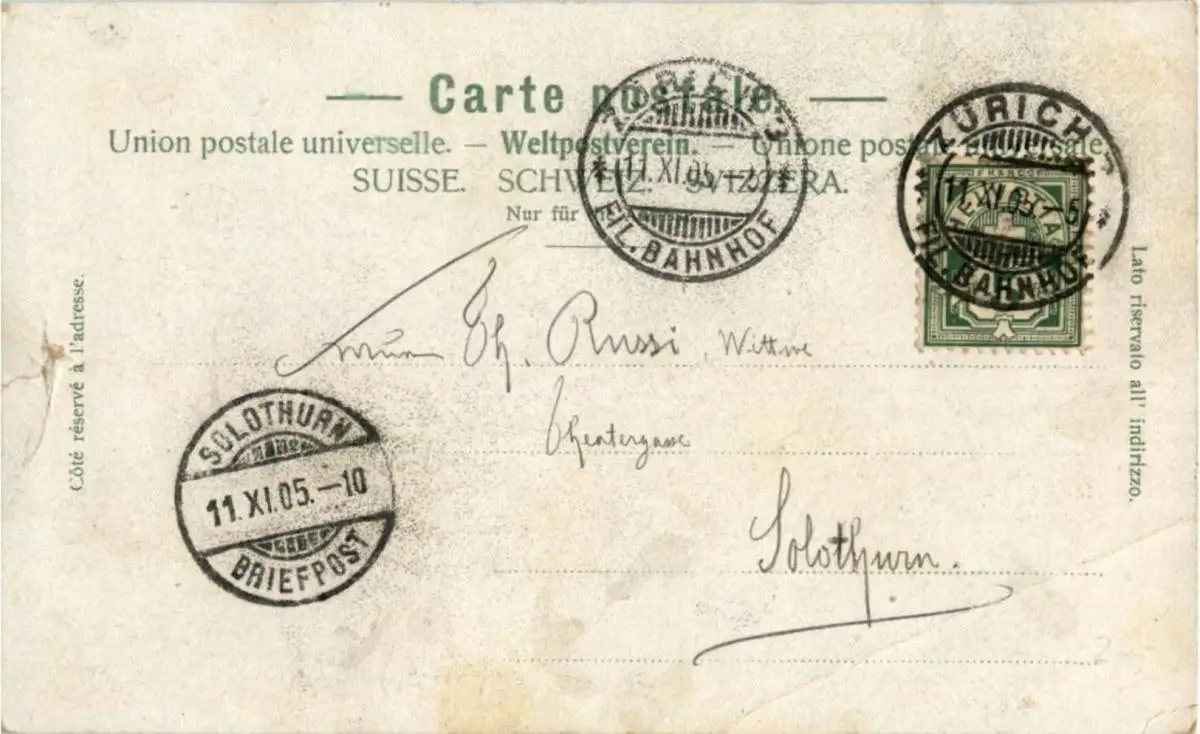 Carte postale
Union postale universelle. — Weltpostverein. — Unione postale universale.
SUISSE. SCHWEIZ. SVIZZERA.
Nur für
ZÜRICH
11.XI.05.
FIL. BAHNHOF
ZÜRICH
11.XI.05.
FIL. BAHNHOF
FRANCO
HELVETIA
Côté réservé à l'adresse.
Lato riservato all' indirizzo.
Th. Russi, Wittwe
Theatergasse
Solothurn.
SOLOTHURN
11.XI.05.—10
BRIEFPOST